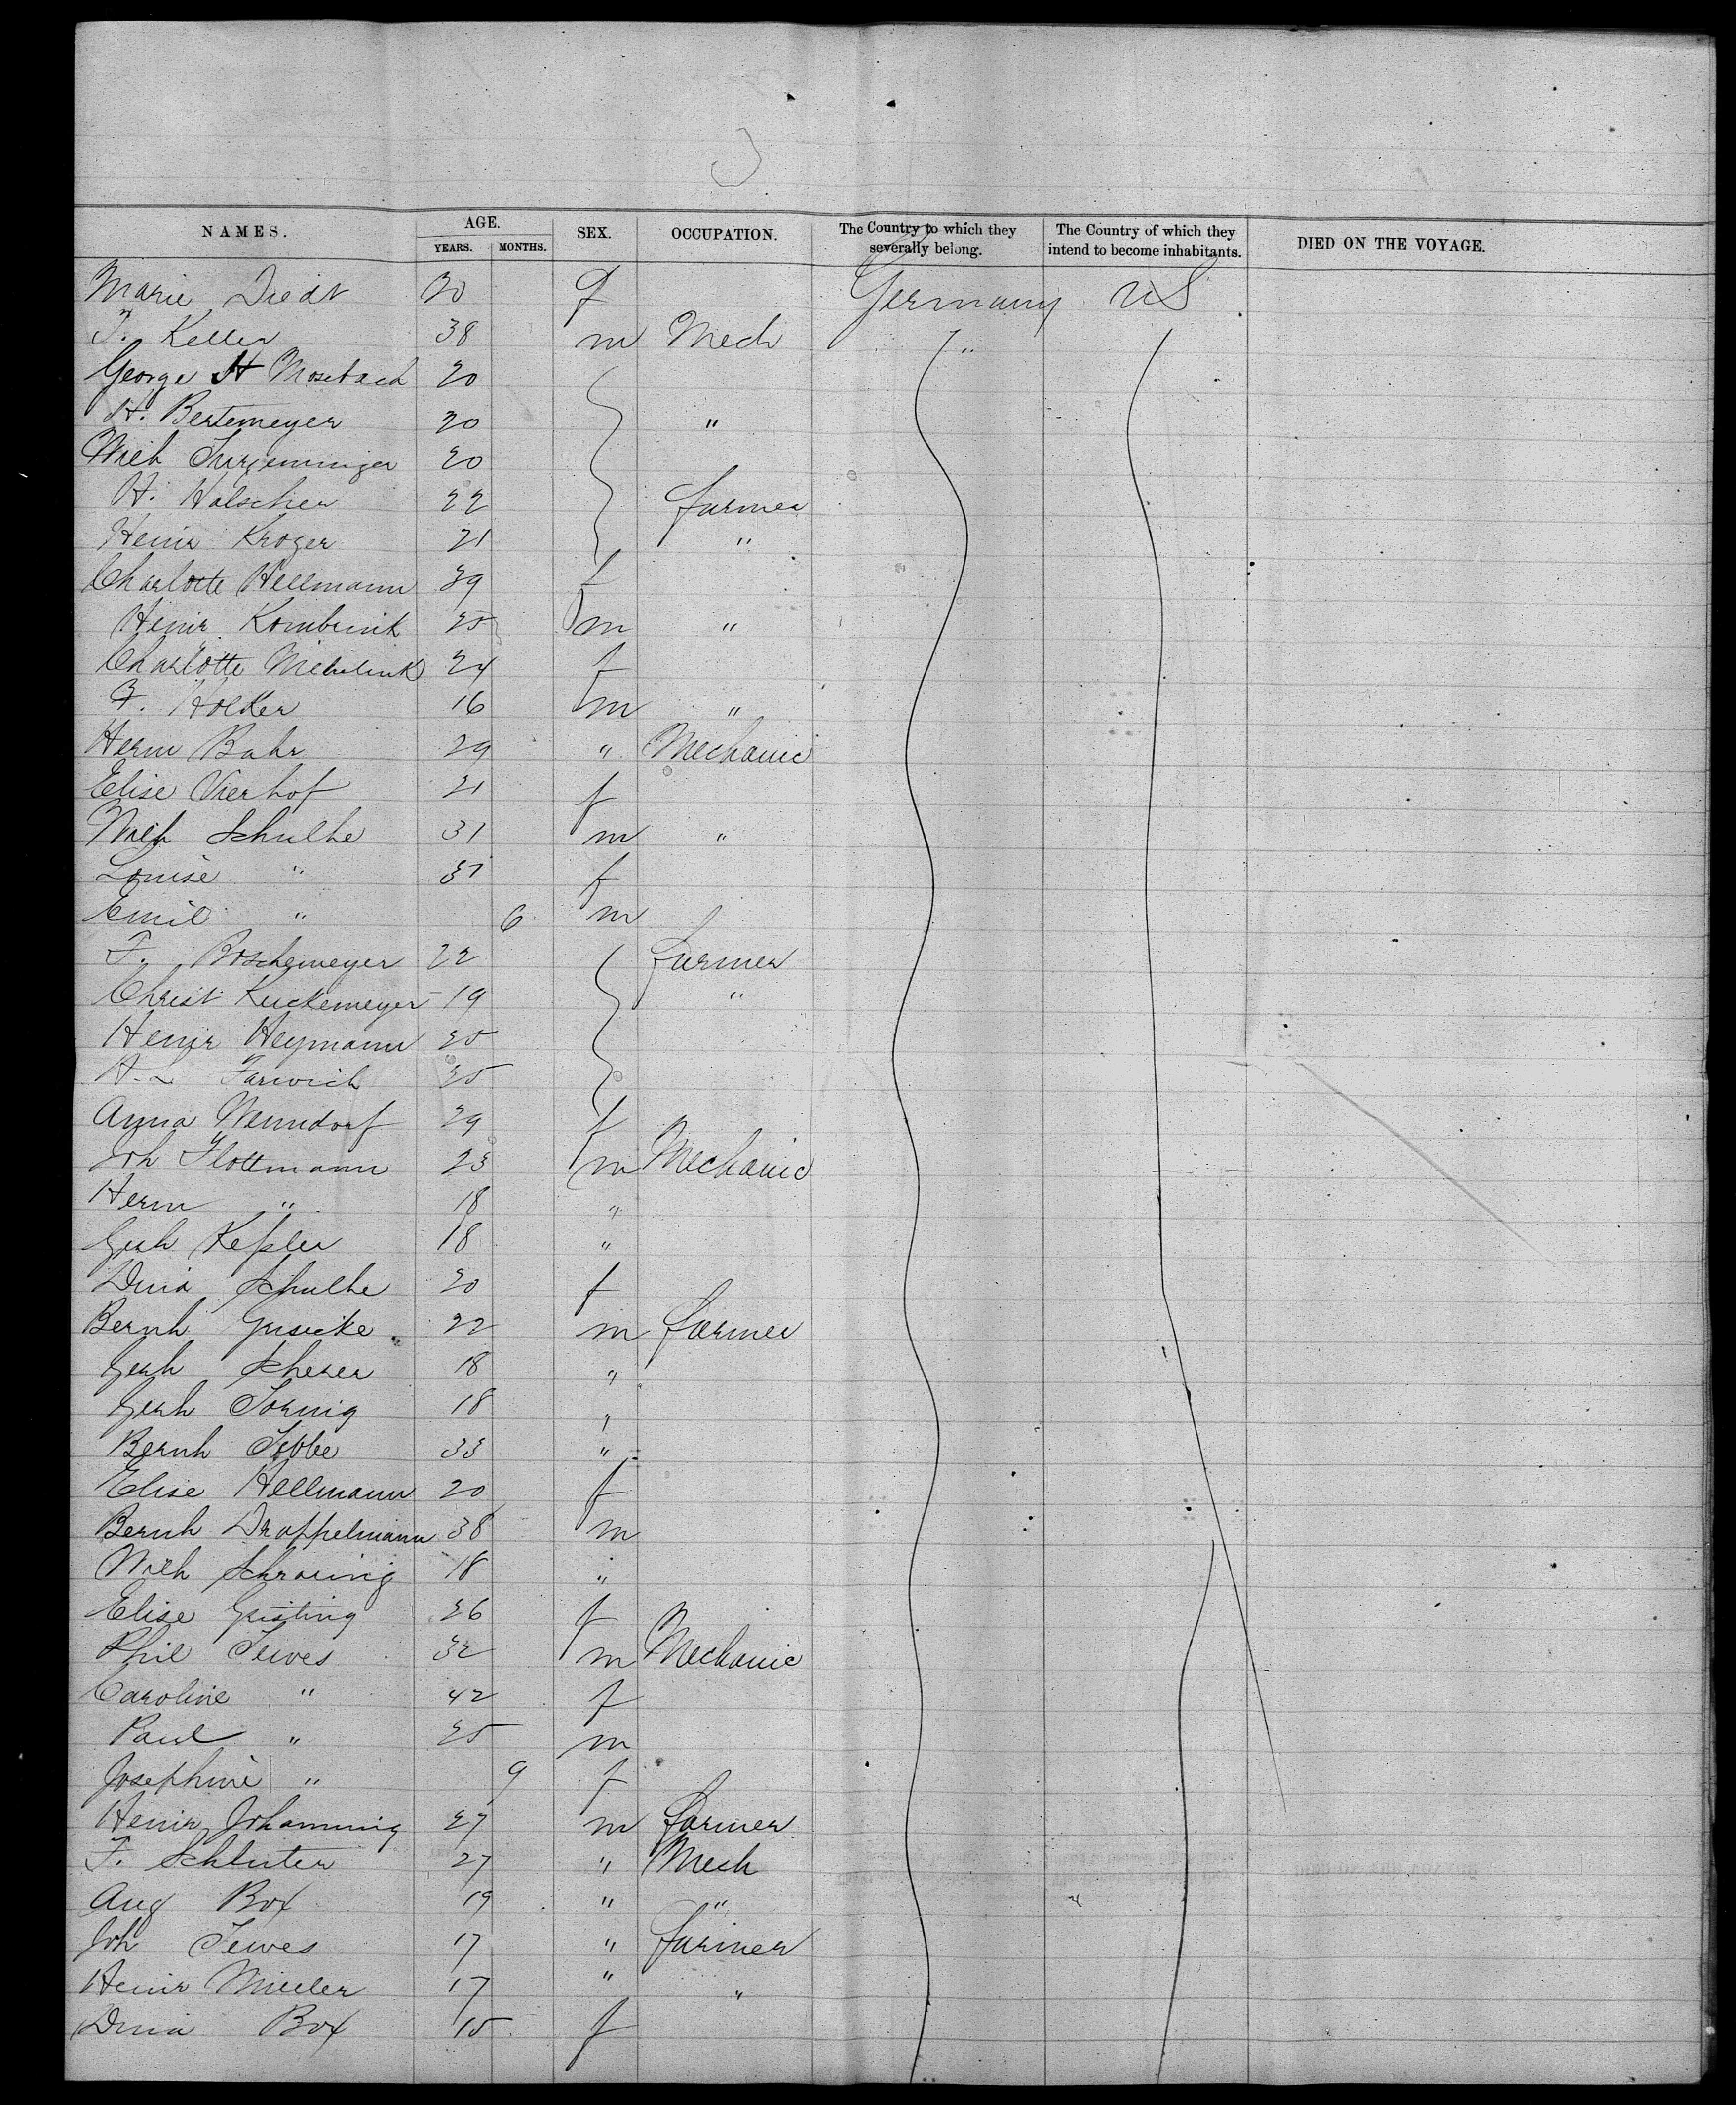 NAMES. AGE. YEARS. MONTHS. SEX. OCCUPATION. The Country to which they severally belong. The Country of which they intend to become inhabitants. DIED ON THE VOYAGE.
Marie Diedt 20 f Germany US
T. Keller 38 m Mech "
George H Mosebach 20
H. Bertemeyer 20 "
Wilh 20
H. Holscher 22 farmer
Heinr Kroger 21 "
Charlotte Hellmann 29 f
Heinr Kombrink 25 m "
Charlotte 24 f
F. Holker 16 m "
Herm Bahr 29 " Mechanic
Elise Vierhof 21 f
Wilh Schulhe 31 m "
Louise " 31 f
Emil " 6 m
F. Boschemeyer 22 farmer
Christ Kuckemeyer 19 "
Heinr Heymann 25
H. L Farwich 25
Anna Wenndorf 29 f
Joh Flottmann 23 m Mechanic
Herm " 18 "
Gerh Keßler 18 "
Dina Schulhe 20 f
Bernh Giesecke 22 m farmer
Gerh Scherer 18 "
Gerh Tornig 18 "
Bernh Tebbe 33 "
Elise Hellmann 20 f
Bernh Drappelmann 38 m
Wilh Schraring 18 "
Elise Geisting 26 f
Phil Tewes 32 m Mechanic
Caroline " 42 f
Paul " 25 m
Josephine " 9 f
Heinr Johanning 27 m farmer
F. Schluter 27 " Mech
Aug Box 19 " "
Joh Tewes 17 " farmer
Heinr Muller 17 " "
Dina Box 15 f